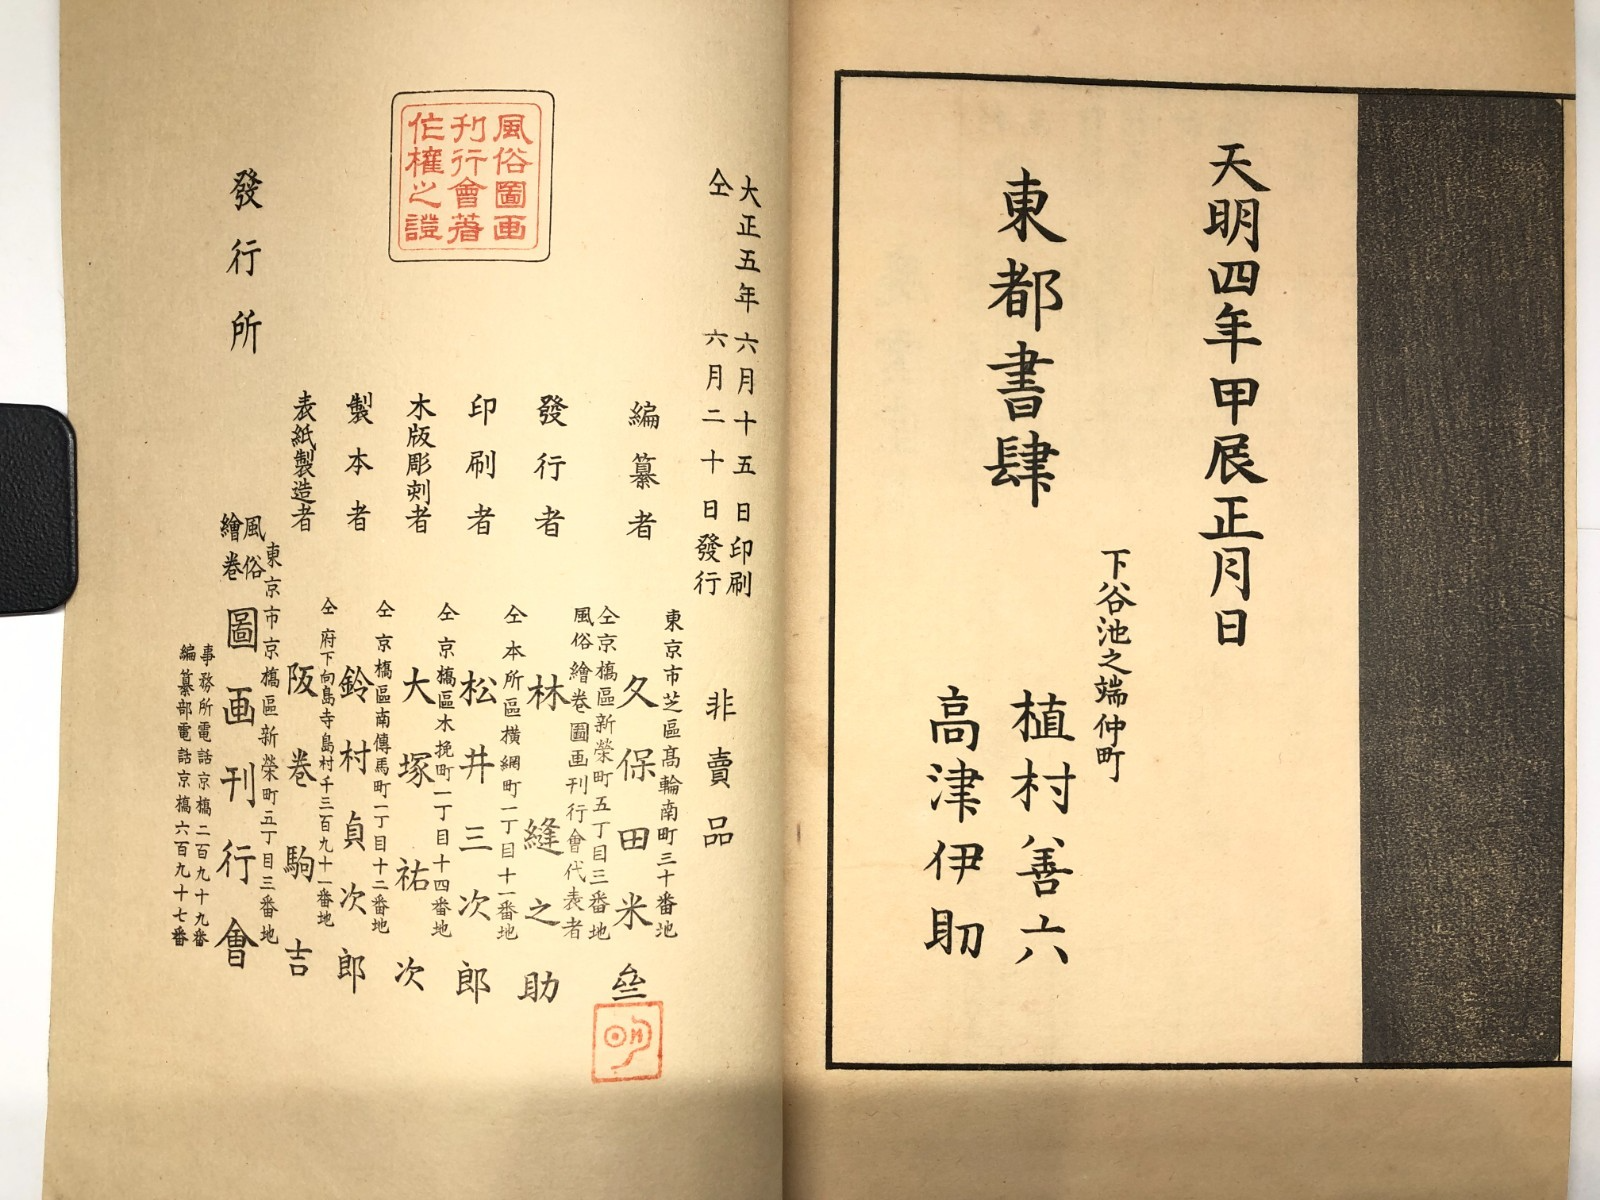 天明四年甲辰正月日
東都書肆
下谷池之端仲町
植村善六
高津伊助
大正五年六月十五日印刷
仝六月二十日發行
非賣品
編纂者
東京市芝區高輪南町三十番地
久保田米
發行者
仝京橋區新榮町五丁目三番地
風俗繪卷圖画刊行會代表者
林縫之助
印刷者
仝本所區横網町一丁目十一番地
松井三次郎
木版彫刻者
仝京橋區木挽町一丁目十四番地
大塚祐次
製本者
仝京橋區南傳馬町一丁目十二番地
鈴村貞次郎
表紙製造者
仝府下向島寺島村千三百九十一番地
阪卷駒吉
風俗圖画
刊行會著
作權之證
發行所
東京市京橋區新榮町五丁目三番地
風俗繪卷圖画刊行會
事務所電話京橋二百九十九番
編纂部電話京橋六百九十七番